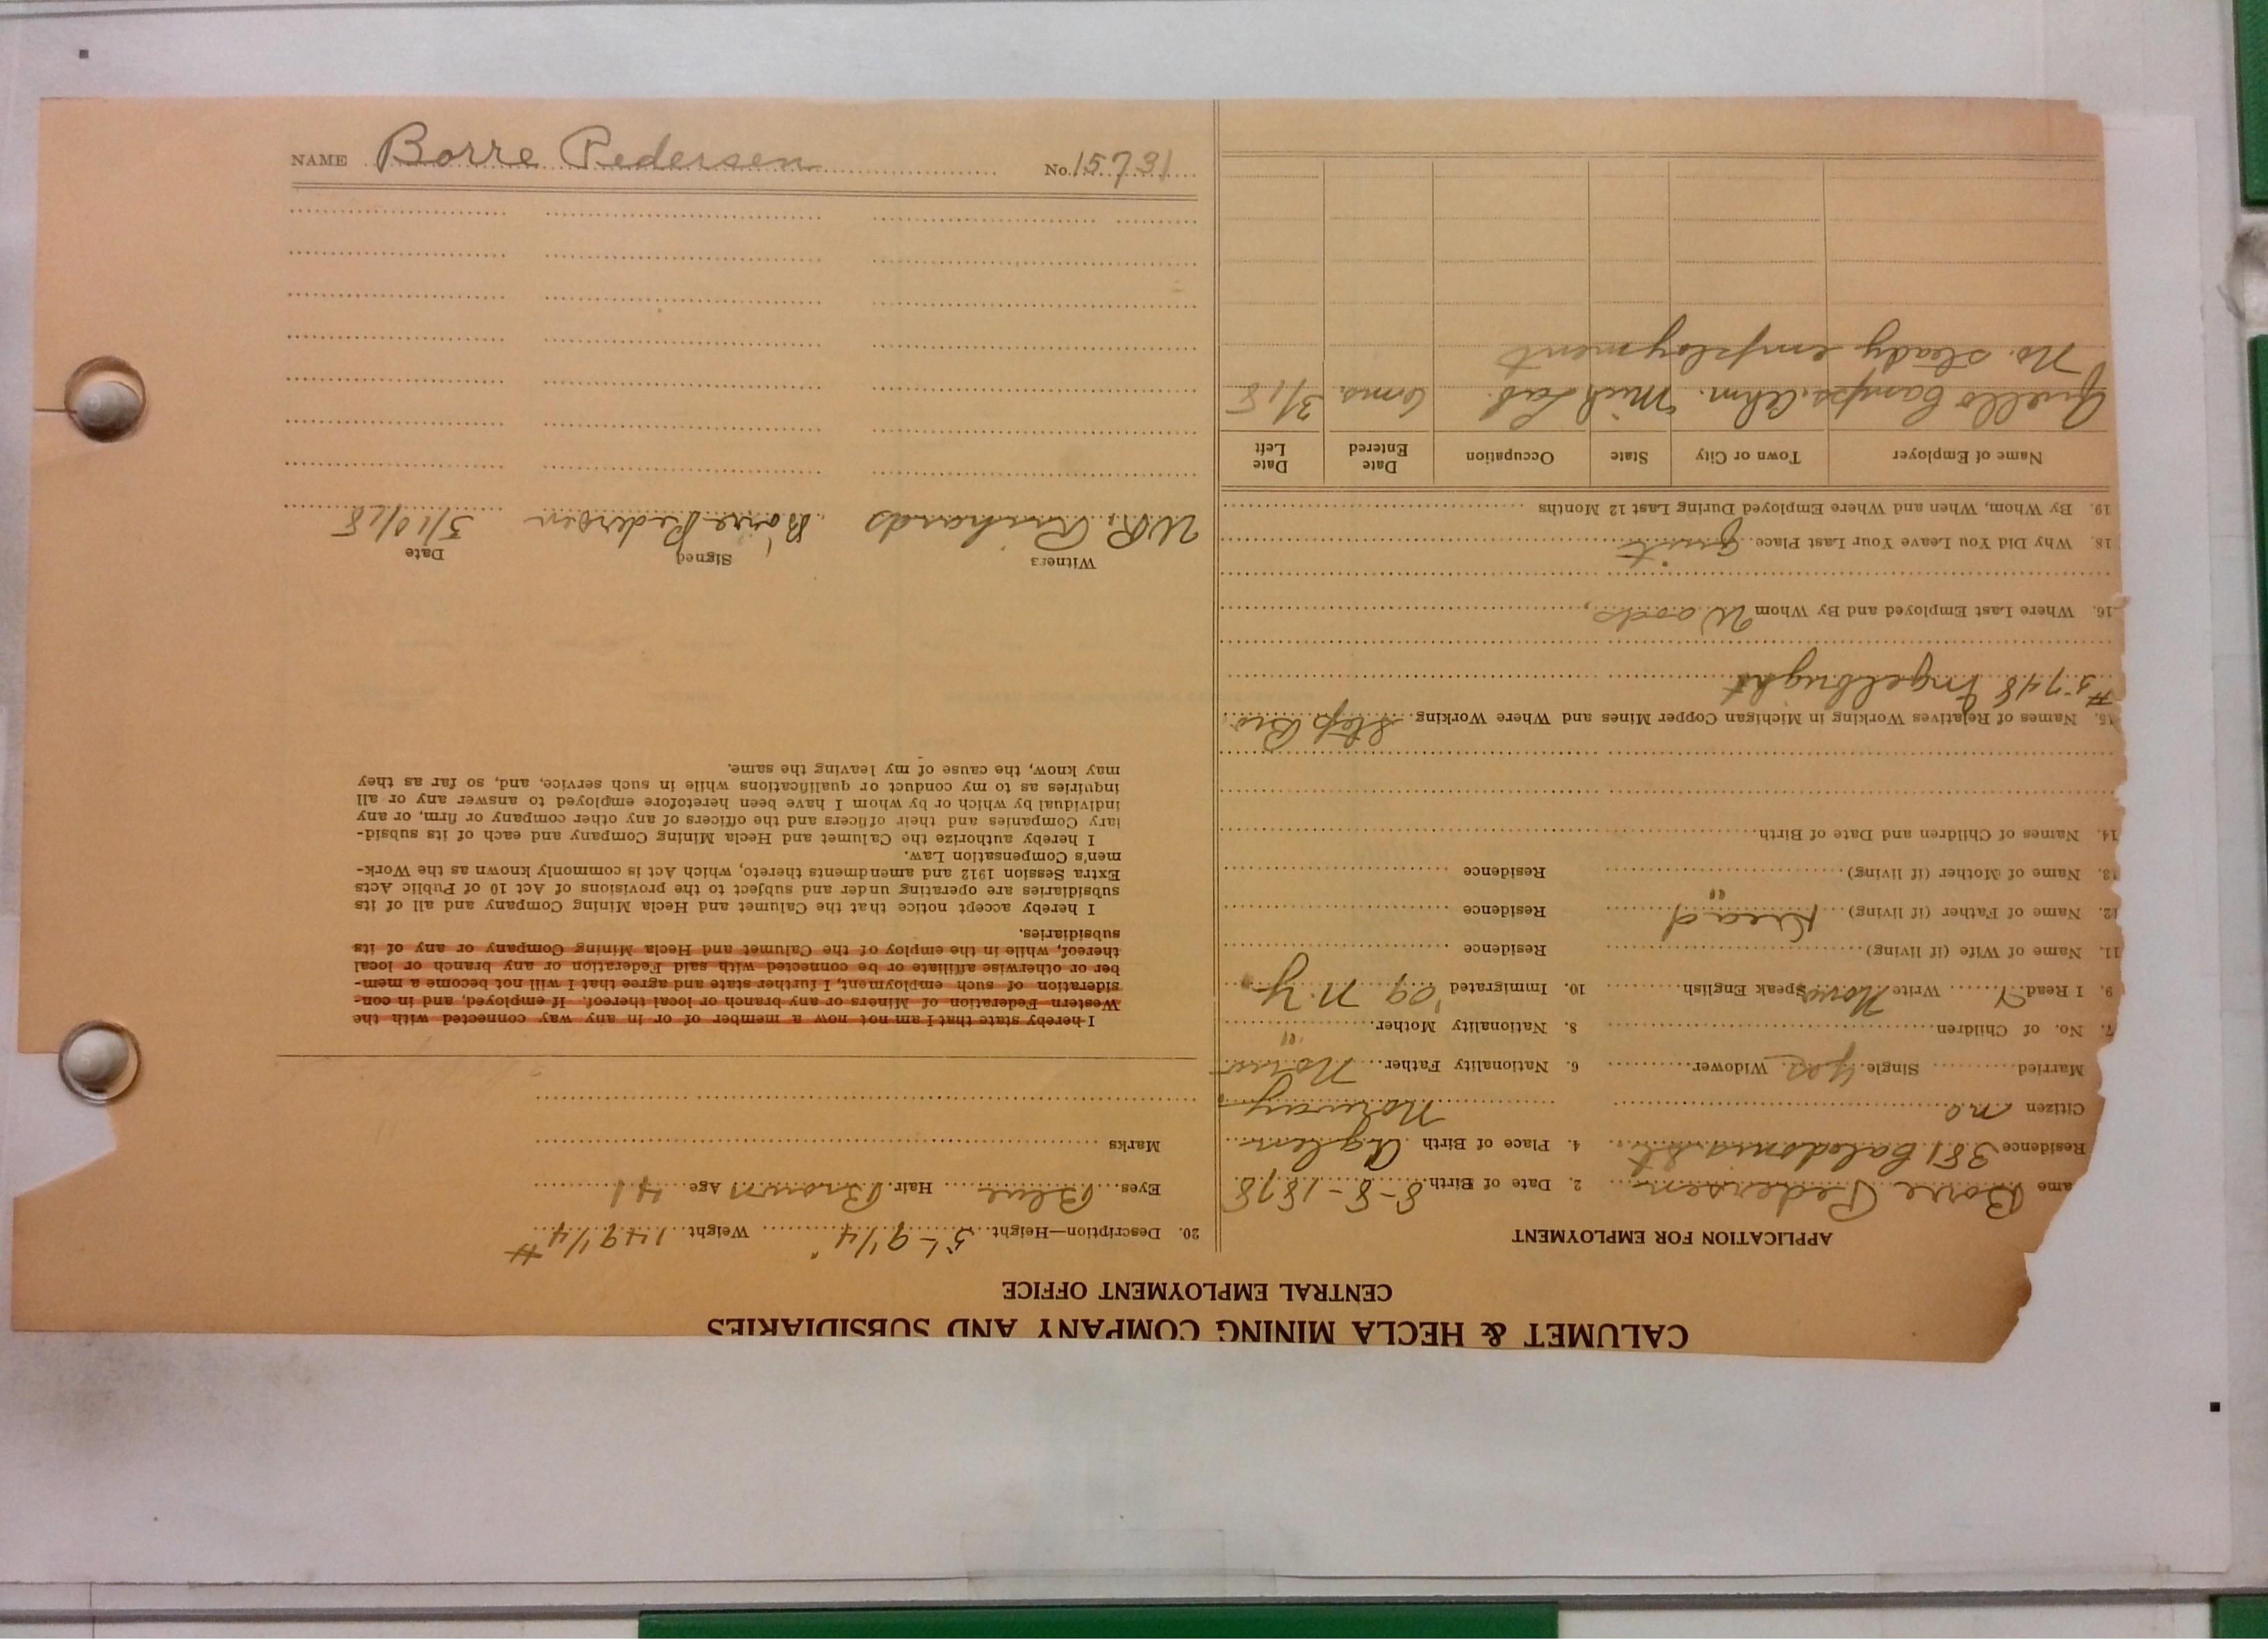 CALUMET & HECLA MINING COMPANY AND SUBSIDIARIES
CENTRAL EMPLOYMENT OFFICE
APPLICATION FOR EMPLOYMENT
ame Borre Pedersen 2. Date of Birth 8-8-1878
Residence 381 Caledonia St. 4. Place of Birth
Citizen no Norway
Married Single Yes Widower 6. Nationality Father Norw
7. No. of Children 8. Nationality Mother "
9. I Read Y Write Norw Speak English 10. Immigrated '09 N.Y.
11. Name of Wife (if living) Residence
12. Name of Father (if living) Dead Residence
13. Name of Mother (if living) " Residence
14. Names of Children and Date of Birth
15. Names of Relatives Working in Michigan Copper Mines and Where Working Step Bro
#5748 Ingelbright
16. Where Last Employed and By Whom Woods
18. Why Did You Leave Your Last Place quit
19. By Whom, When and Where Employed During Last 12 Months
Name of Employer Town or City State Occupation Date Entered Date Left
Camps. Ahm. Mich Lab. 6ms. 3/18
No. steady employment
20. Description—Height 5'-9 1/4" Weight 149 1/4 #
Eyes Blue Hair Brown Age 41
Marks
I hereby state that I am not now a member of or in any way connected with the
Western Federation of Miners or any branch or local thereof. If employed, and in con-
sideration of such employment, I further state and agree that I will not become a mem-
ber or otherwise affiliate or be connected with said Federation or any branch or local
thereof, while in the employ of the Calumet and Hecla Mining Company or any of its
subsidiaries.
I hereby accept notice that the Calumet and Hecla Mining Company and all of its
subsidiaries are operating under and subject to the provisions of Act 10 of Public Acts
Extra Session 1912 and amendments thereto, which Act is commonly known as the Work-
men's Compensation Law.
I hereby authorize the Calumet and Hecla Mining Company and each of its subsid-
iary Companies and their officers and the officers of any other company or firm, or any
individual by which or by whom I have been heretofore employed to answer any or all
inquiries as to my conduct or qualifications while in such service, and, so far as they
may know, the cause of my leaving the same.
Witness Signed Date
W.R. Richards Börre Pedersen 3/10/18
NAME Borre Pedersen No. 15731